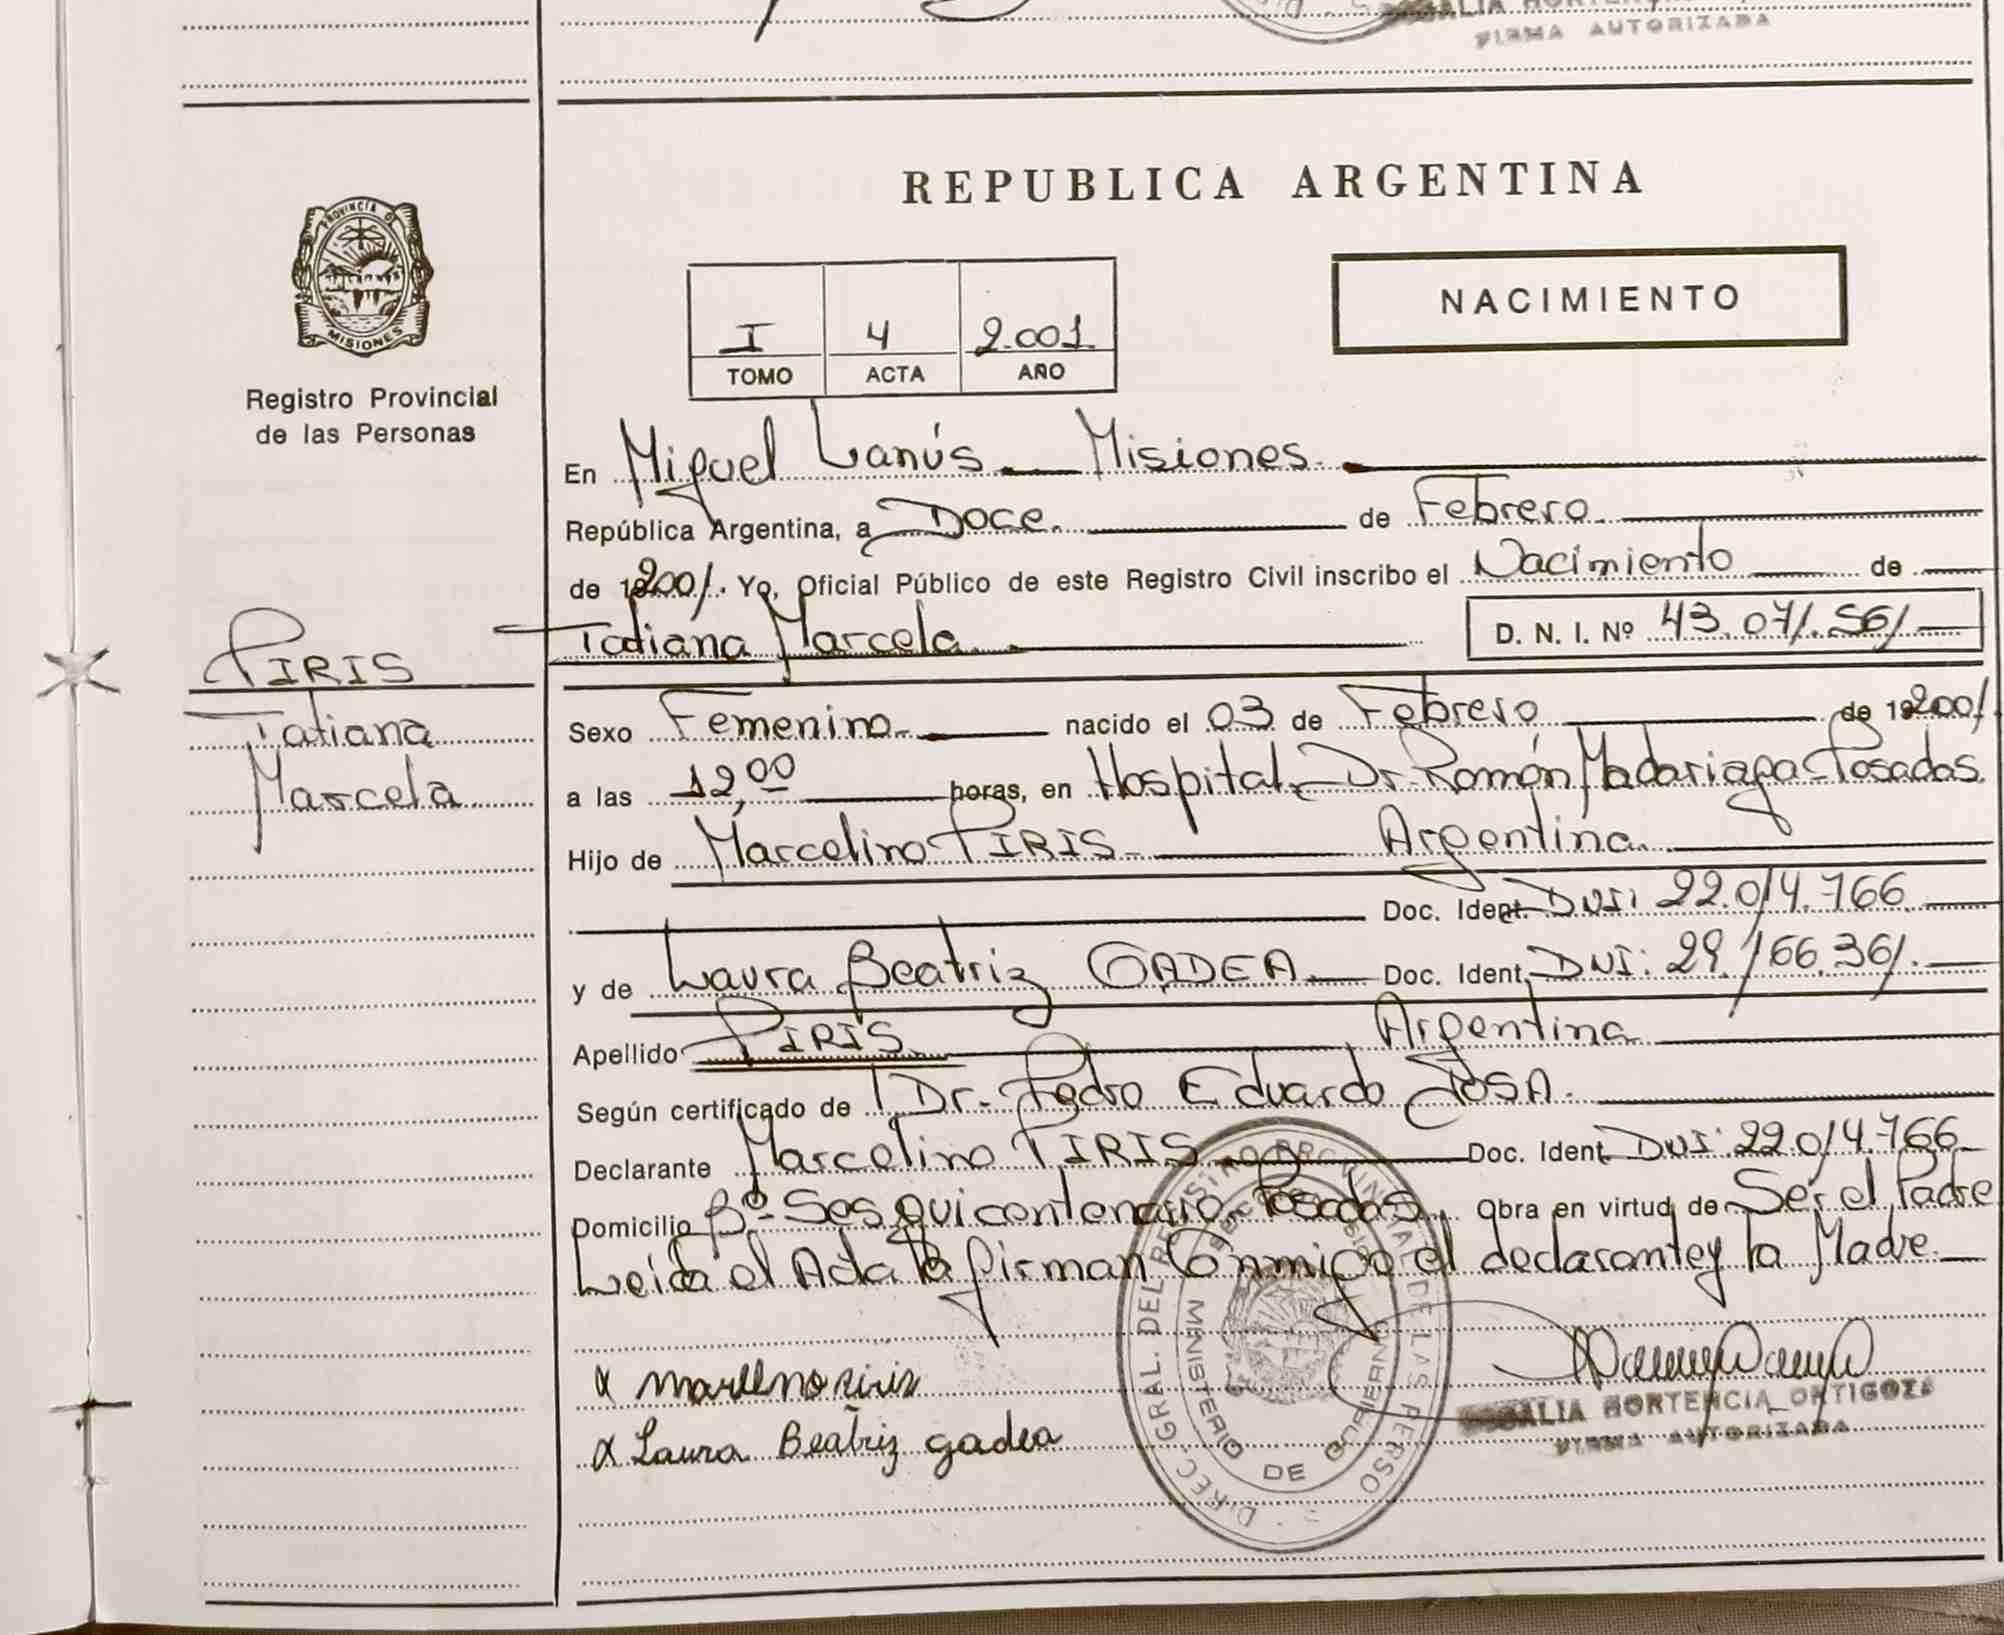 FIRMA AUTORIZADA
REPUBLICA ARGENTINA
PROVINCIA DE MISIONES
Registro Provincial
de las Personas
NACIMIENTO
I 4 2.001
TOMO ACTA AÑO
En Miguel Lanús - Misiones.
República Argentina, a Doce. de Febrero.
de 2001. Yo, Oficial Público de este Registro Civil inscribo el Nacimiento de
Tatiana Marcela. D. N. I. Nº 43.071.561
PIRIS
Tatiana
Marcela
Sexo Femenino. nacido el 03 de Febrero de 192001
a las 12,00 horas, en Hospital - Dr. Román Madariaga - Posadas.
Hijo de Marcelino PIRIS Argentina.
Doc. Ident. DNI: 22.014.766
y de Laura Beatriz GADEA. Doc. Ident. DNI: 29.166.361.
Apellido PIRIS Argentina
Según certificado de Dr. Pedro Eduardo SOSA.
Declarante Marcelino PIRIS. Doc. Ident. DNI: 22.014.766
Domicilio Bº Sesquicentenario - Posadas. Obra en virtud de Ser el Padre
Leida el Acta la firman Conmigo el declarante y la Madre.
DIREC. GRAL. DEL REGISTRO PROVINCIAL DE LAS PERSO
MINISTERIO DE GOBIERNO
x Laura Beatriz gadea
HORTENCIA ORTIGOZA
FIRMA AUTORIZADA